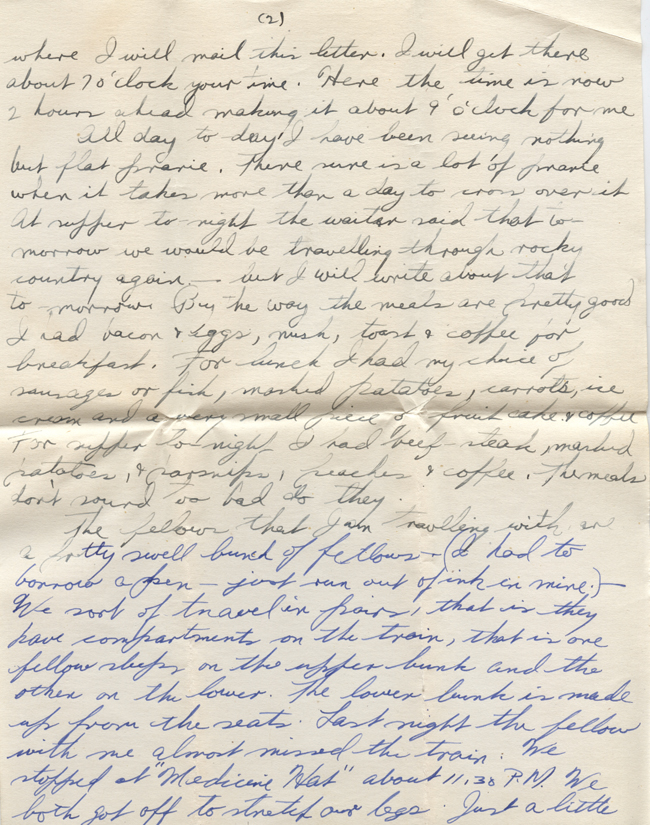 (2)
where I will mail this letter. I will get there
about 7 o'clock your time. Here the time is now
2 hours ahead making it about 9 o'clock for me
All day to day I have been seeing nothing
but flat prarie. There sure is a lot of prarie
when it takes more than a day to cross over it
At supper to-night the waitar said that to-
morrow we would be travelling through rocky
country again — but I will write about that
to morrow. By the way the meals are pretty good
I had bacon & eggs, mush, toast & coffee for
breakfast. For lunch I had my choice of
sausages or fish, mashed patatoes, carrots, ice
cream and a very small piece of fruit cake & coffee
For supper to-night I had beef-steak, mashed
patatoes, & parsnips, peaches & coffee. The meals
don't sound too bad do they.
The fellows that I am travlling with are
a pretty swell bunch of fellows - (I had to
borrow a pen — just run out of ink in mine.) —
We sort of travel in pairs, that is they
have compartments on the train, that is one
fellow sleeps on the upper bunk and the
other on the lower. The lower bunk is made
up from the seats. Last night the fellow
with me almost missed the train. We
stopped at "Medicine Hat" about 11.30 P.M. We
both got off to stretch our legs. Just a little